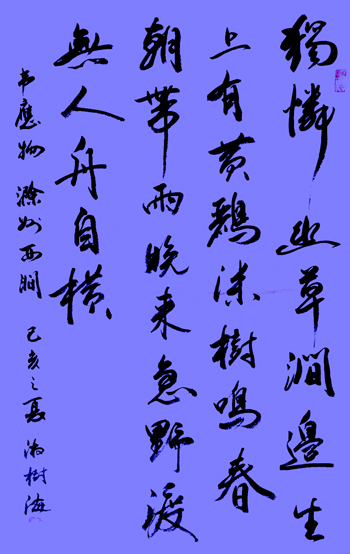 獨憐幽草澗邊生
上有黃鸝深樹鳴春
潮帶雨晚來急野渡
無人舟自橫
韋應物 滁州西澗 己亥之夏 樹海